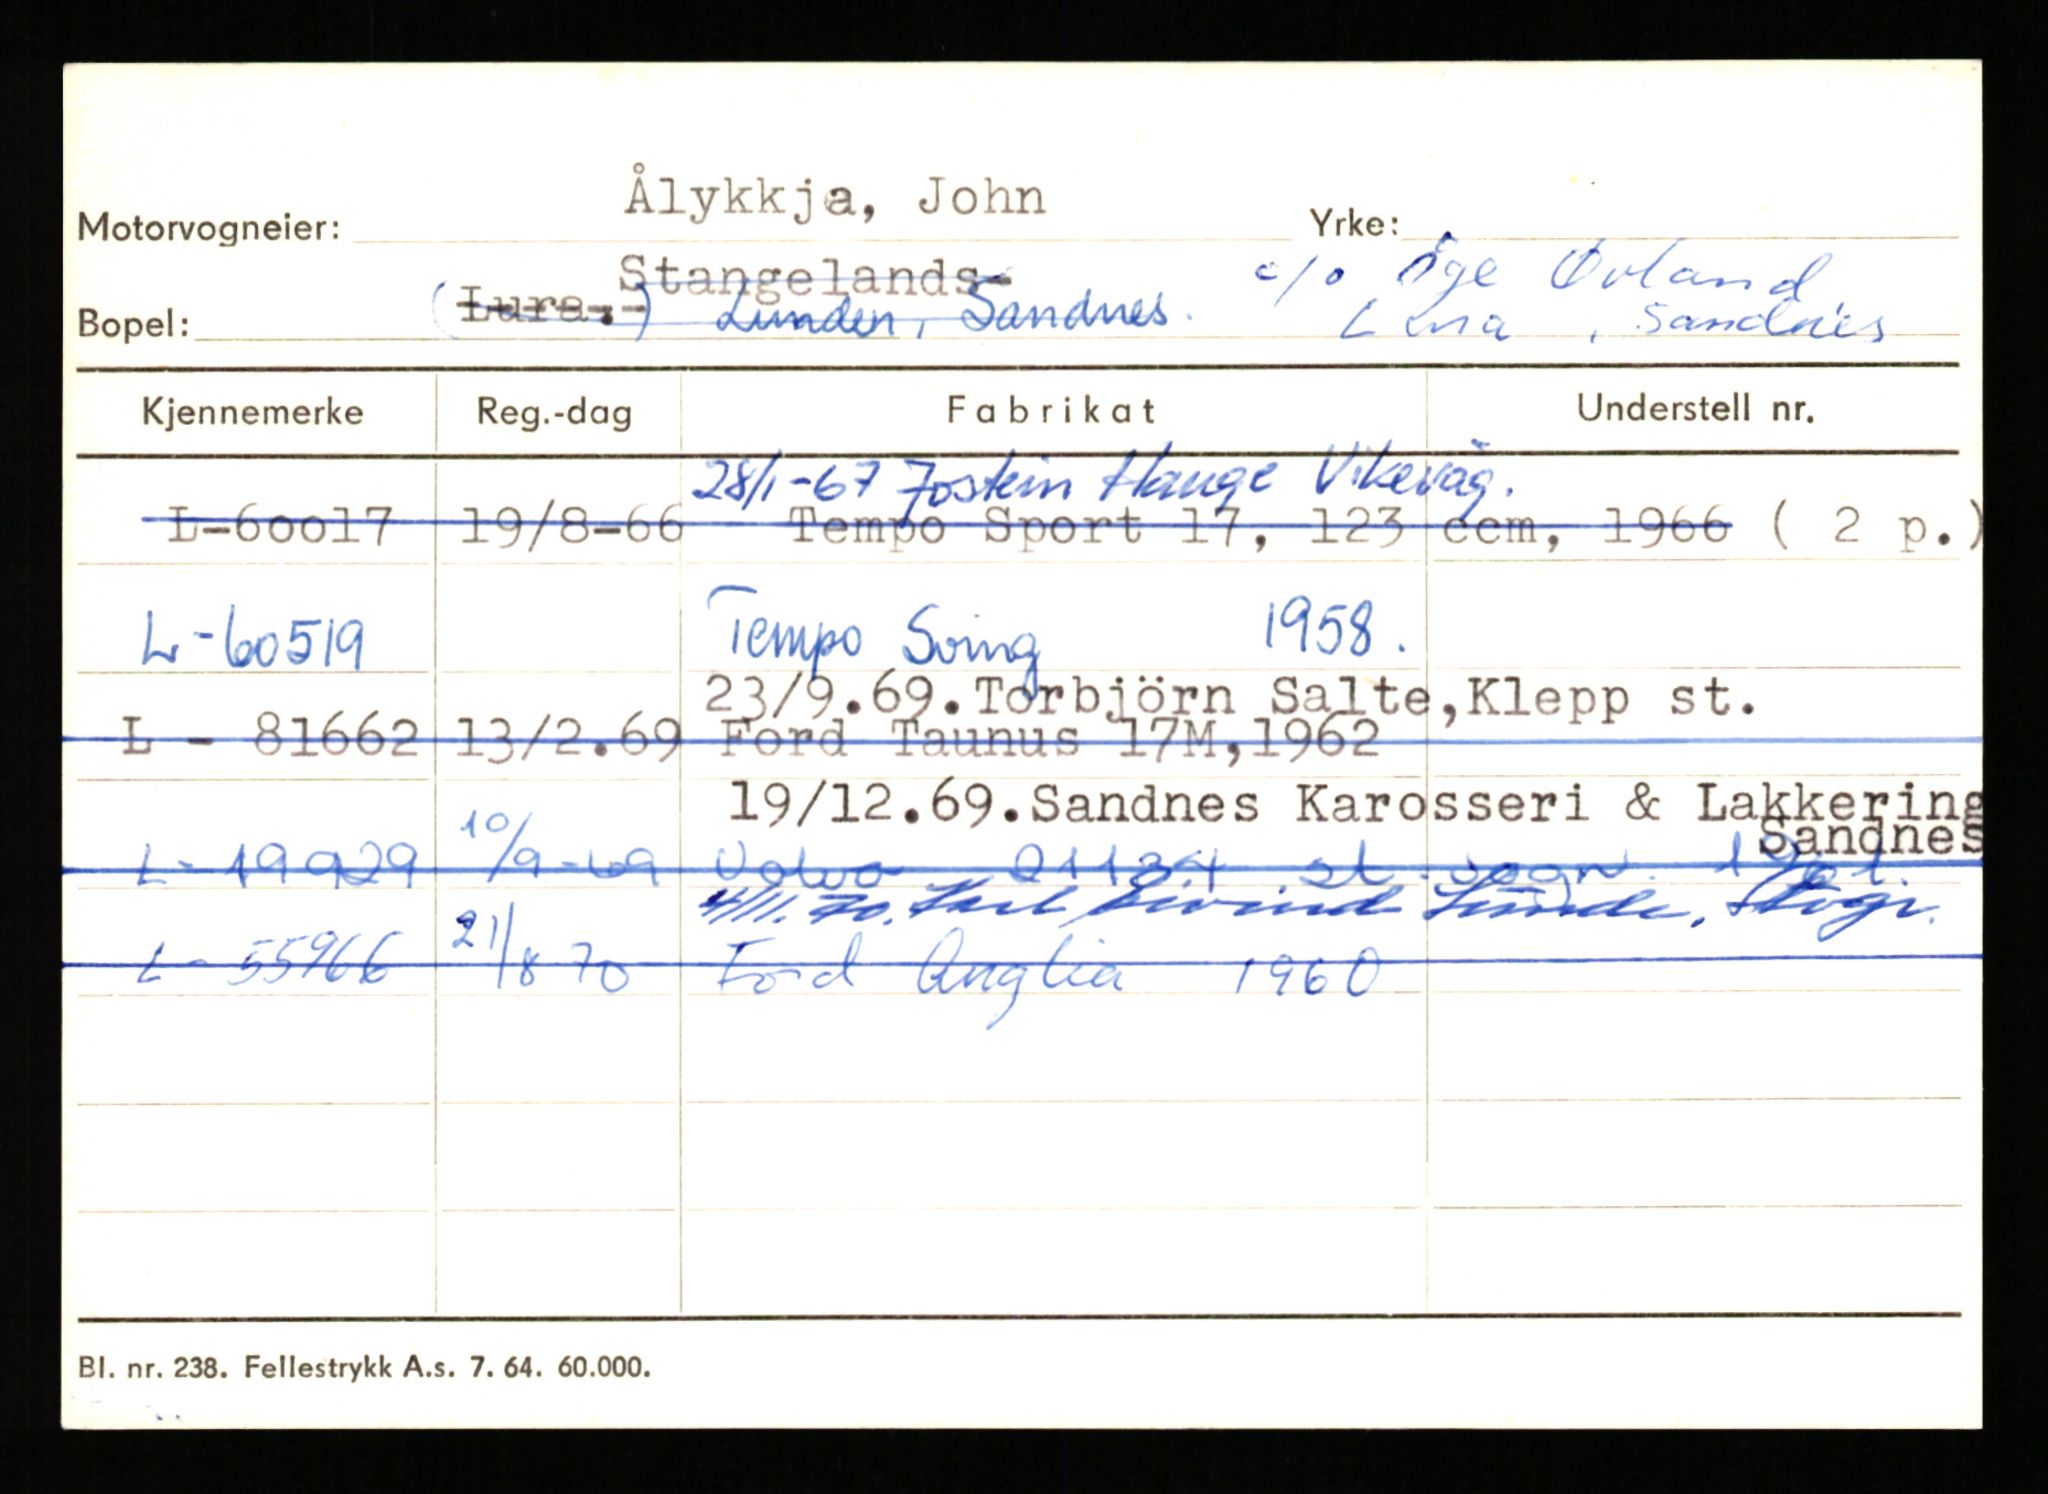 Ålykkja, John
Motorvogneier: Yrke:
Stangelands- c/o Åge Øvland
Bopel: (Lura.-) Lunden, Sandnes. Lura, Sandnes
Kjennemerke Reg.-dag Fabrikat Understell nr.
28/1-67 Jostein Hauge Vikevåg.
L-60017 19/8-66 Tempo Sport 17, 123 ccm, 1966 ( 2 p.)
L-60519 Tempo Swing 1958.
23/9.69.Torbjörn Salte,Klepp st.
L - 81662 13/2.69 Ford Taunus 17M,1962
19/12.69.Sandnes Karosseri & Lakkering
Sandnes
L-19929 10/9-69 Volvo 21134 st.vogn. 1961.
4/11.70. Eivind
L-55966 21/8 70 Ford Anglia 1960
Bl. nr. 238. Fellestrykk A.s. 7. 64. 60.000.